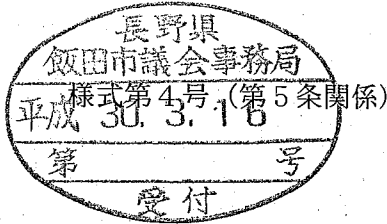 長野県
飯田市議会事務局
様式第4号(第5条関係)
平成 30. 3. 16
第 号
受付